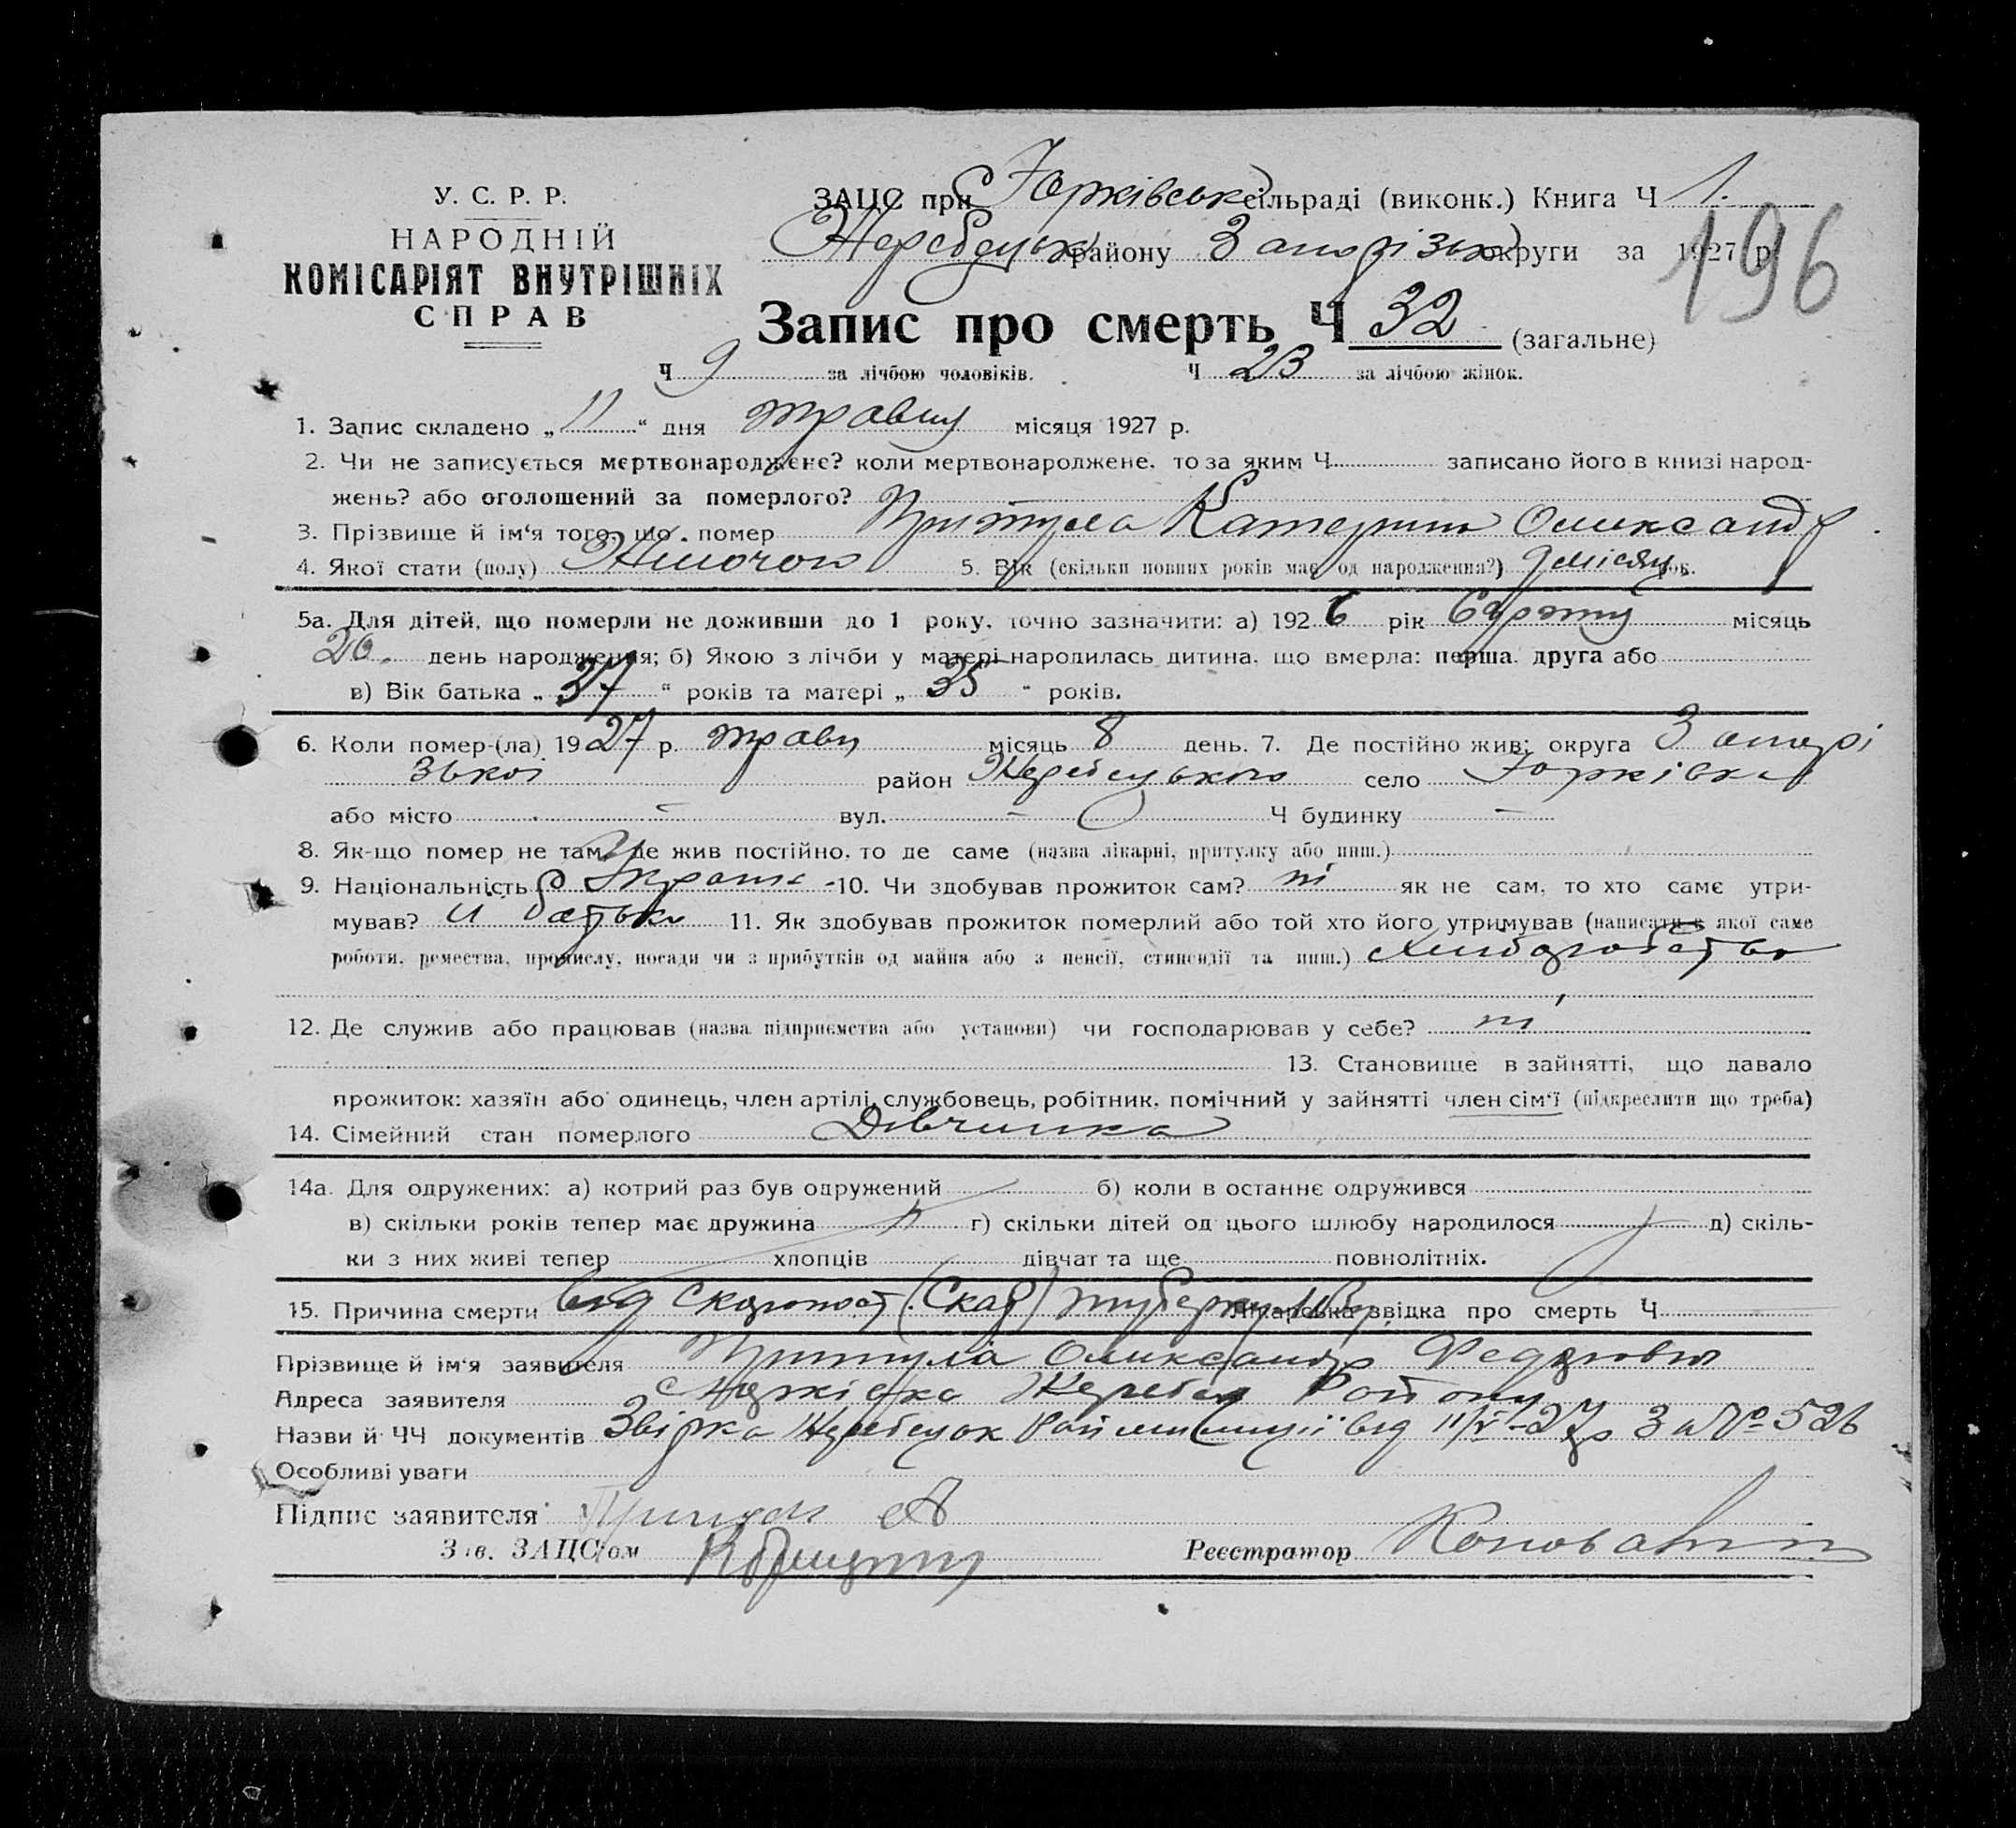 У. С. Р. Р.
НАРОДНІЙ
КОМІСАРІЯТ ВНУТРІШНІХ
СПРАВ
ЗАЦС при Юрківськ сільраді (виконк.) Книга Ч 1.
Жеребецьк району Запорізьк округи за 1927 р.
196
Запис про смерть Ч 32 (загальне)
Ч 9 за лічбою чоловіків. Ч 23 за лічбою жінок.
1. Запис складено „11“ дня травня місяця 1927 р.
2. Чи не записується мертвонароджене? коли мертвонароджене, то за яким Ч записано його в книзі народ-
жень? або оголошений за померлого?
3. Прізвище й ім‘я того, що помер Притула Катерина Олександр
4. Якої стати (полу) Жіночої 5. Вік (скільки повних років має од народження?) 9 місяц рок.
5а. Для дітей, що померли не доживши до 1 року, точно зазначити: а) 1926 рік місяць
20. день народження; б) Якою з лічби у матері народилась дитина, що вмерла: перша, друга або
в) Вік батька „37“ років та матері „35“ років.
6. Коли помер-(ла) 1927 р. травн місяць 8 день. 7. Де постійно жив: округа Запорі
зької район Жеребецького село Юрківка
або місто - вул. - Ч будинку -
8. Як-що помер не там, де жив постійно, то де саме (назва лікарні, притулку або инш.)
9. Національність 10. Чи здобував прожиток сам? ні як не сам, то хто саме утри-
мував? батько 11. Як здобував прожиток померлий або той хто його утримував (написати з якої саме
роботи, ремества, промислу, посади чи з прибутків од майна або з пенсії, стипендії та инш.) Хліборобство
12. Де служив або працював (назва підприємства або установи) чи господарював у себе? ні
13. Становище в зайнятті, що давало
прожиток: хазяїн або одинець, член артілі, службовець, робітник, помічний у зайнятті член сім‘ї (підкреслити що треба)
14. Сімейний стан померлого Дівчинка
14а. Для одружених: а) котрий раз був одружений б) коли в останнє одружився
в) скільки років тепер має дружина г) скільки дітей од цього шлюбу народилося д) скіль-
ки з них живі тепер хлопців дівчат та ще повнолітніх.
15. Причина смерти від Скоропост. туберкульоз Лікарська звідка про смерть Ч
Прізвище й ім‘я заявителя Притула Олександр Федорович
Адреса заявителя с Юрківка Жеребец Району
Назви й ЧЧ документів Звідка Жеребецьк Райміліції від 11/V-27 р за № 526
Особливі уваги
Підпис заявителя Притула А
Зав. ЗАЦС‘ом Реєстратор Коновал